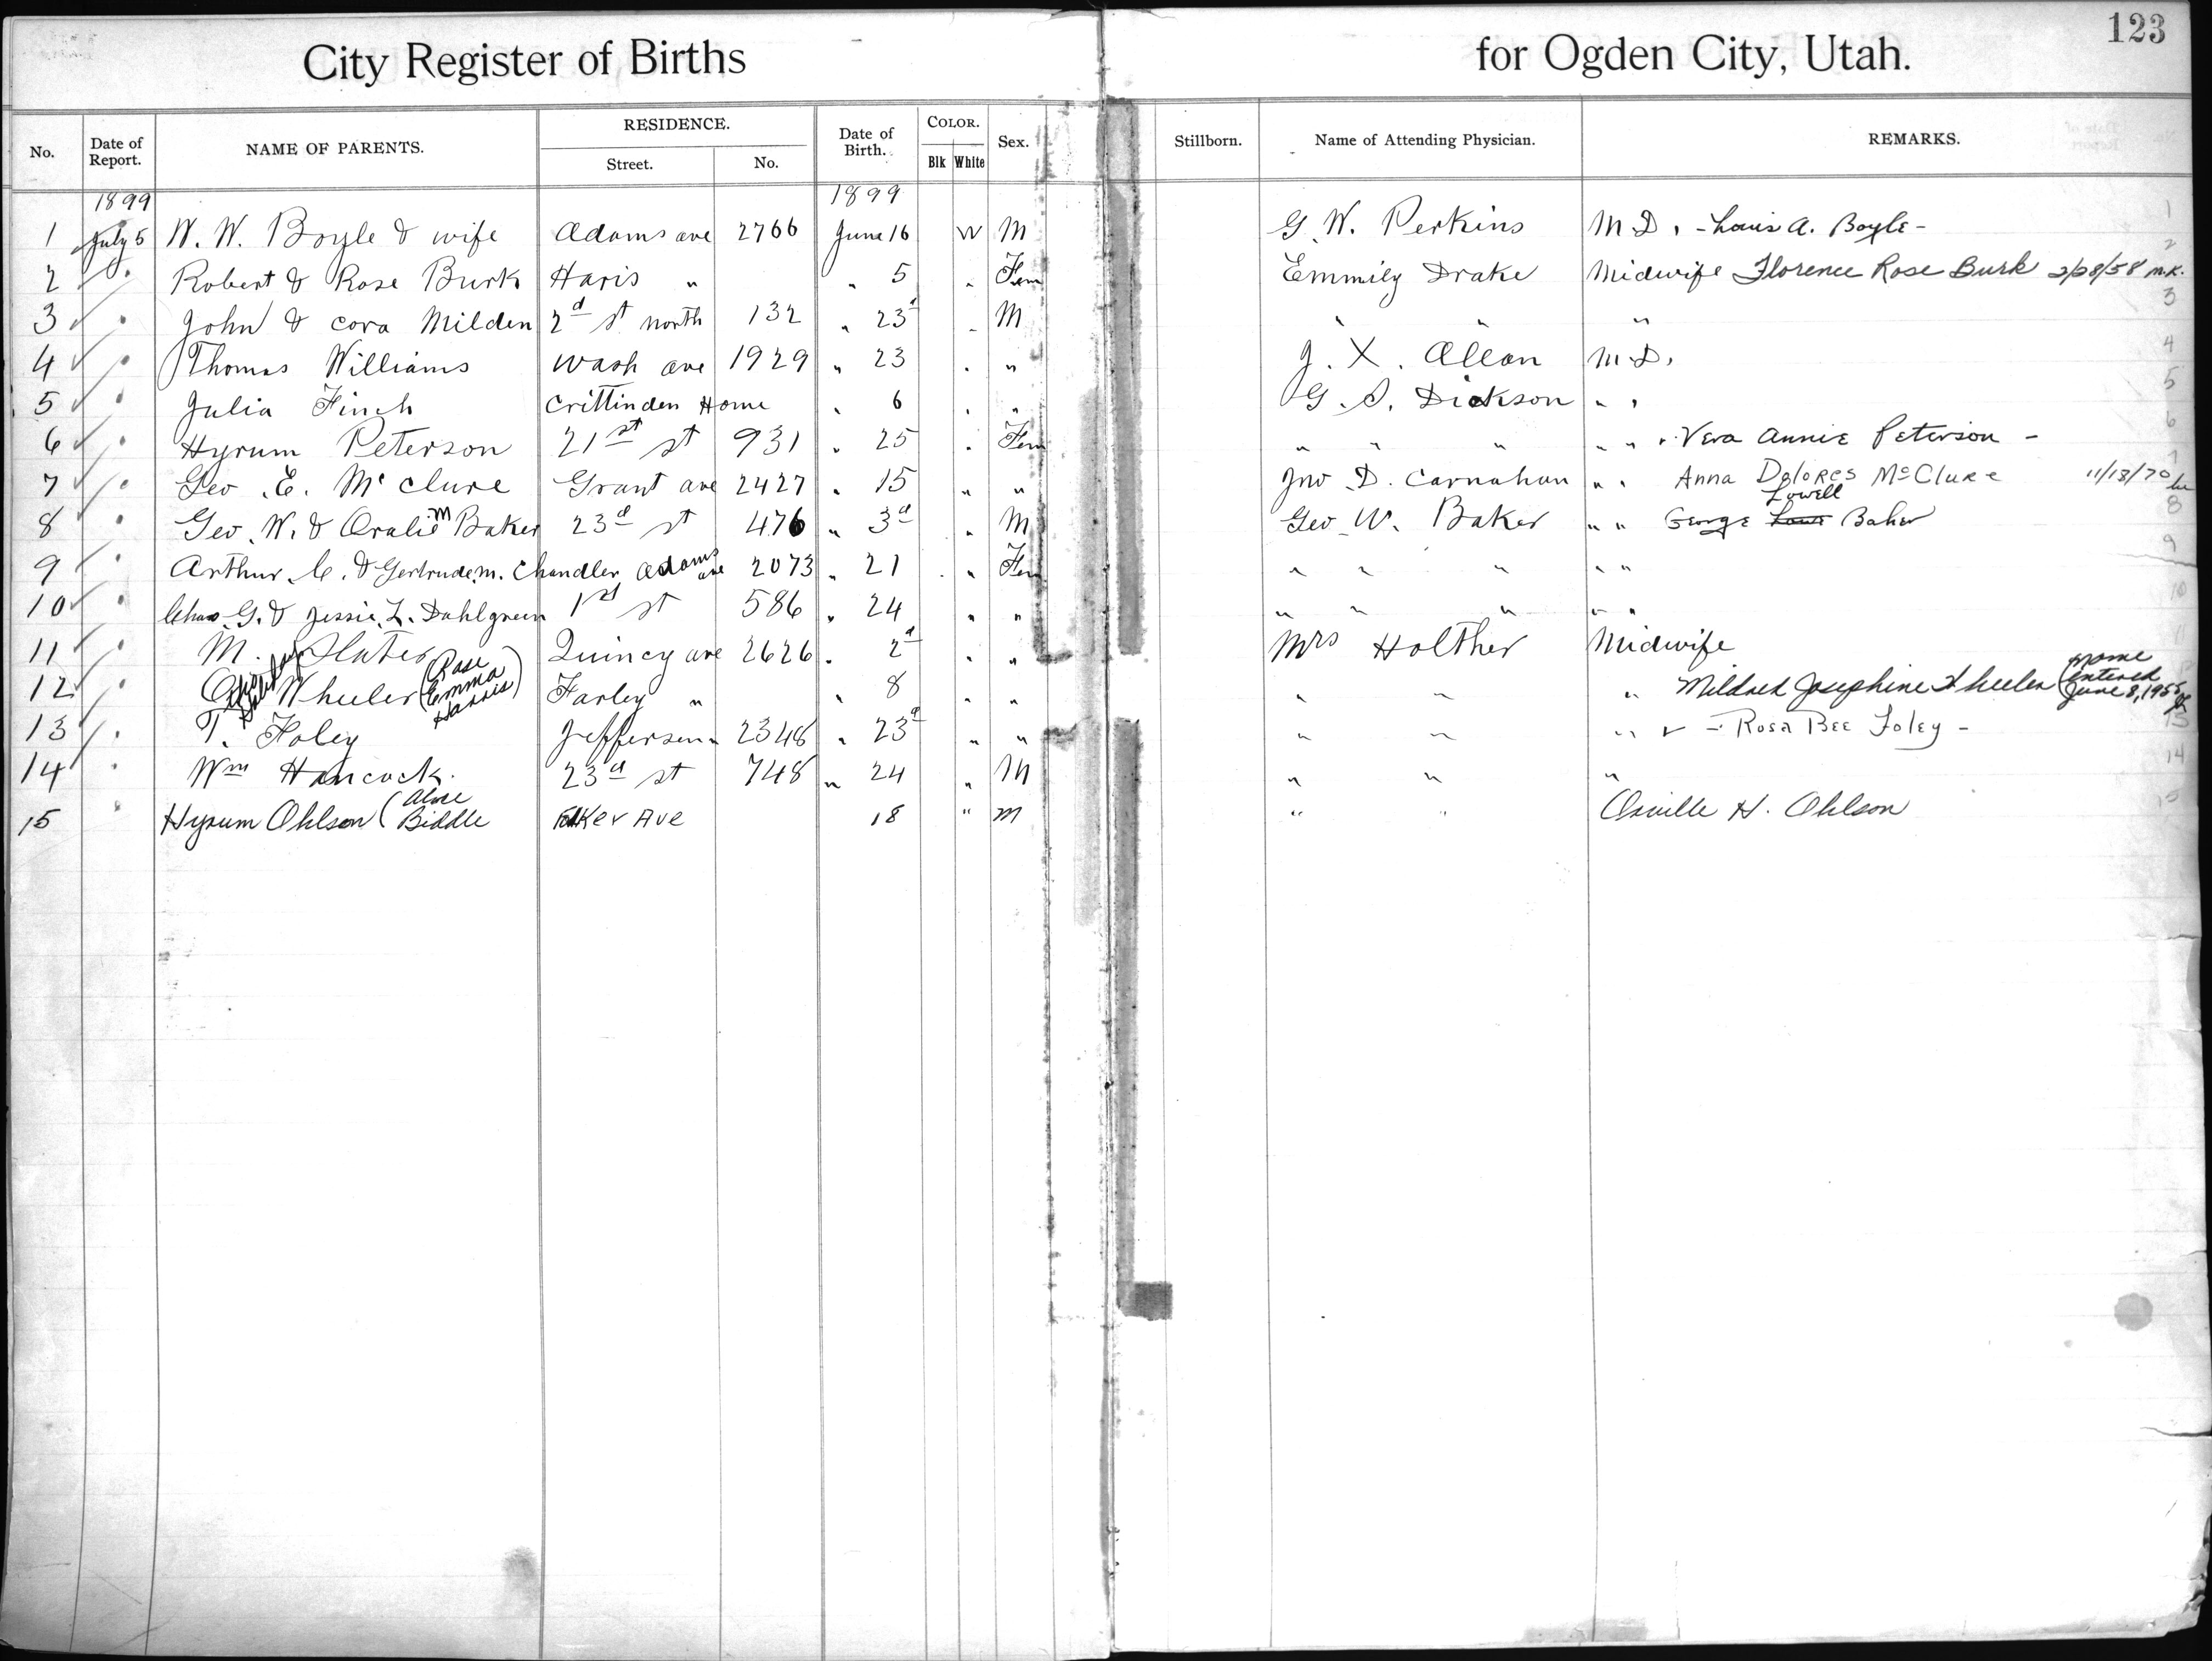 123
City Register of Births for Ogden City, Utah.
No. Date of Report. NAME OF PARENTS. RESIDENCE. Street. No. Date of Birth. COLOR. Blk White Sex. Stillborn. Name of Attending Physician. REMARKS.
1899 1899
1 July 5 W. W. Boyle & wife Adams ave 2766 June 16 W M G. W. Perkins M.D. - Louis A. Boyle - 1
2 " Robert & Rose Burk Haris " " 5 " Fem Emmily Drake Midwife Florence Rose Burk 2/28/58 M.K. 2
3 " John & Cora Milden 2d st north 132 " 23d " M " " " 3
4 " Thomas Williams Wash ave 1929 " 23 " " J. X. Allen M.D. 4
5 " Julia Finch Crittinden Home " 6 " " G. S. Dickson " " 5
6 " Hyrum Peterson 21st st 931 " 25 " Fem " " " " " Vera Annie Peterson - 6
7 " Geo. E. McClure Grant ave 2427 " 15 " " Jno D. Carnahan " " Anna Dolores McClure 11/18/70 7
8 " Geo. W. & Oralie M Baker 23d st 476 " 3d " M Geo W. Baker " " George Lowell Baker 8
9 " Arthur C. & Gertrude m. Chandler Adams ave 2073 " 21 " Fem " " " " " 9
10 " Chas. G. & Jessie L. Dahlgreen 1st st 586 " 24 " " " " " " " 10
11 " M. Slater Quincy ave 2626 " 2d " " Mrs Holther Midwife 11
12 " Wheeler (Rose Emma Harris) Farley " " 8 " " " " " Mildred Josephine Wheeler (name entered June 8, 1955
13 " T. Foley Jefferson " 2348 " 23d " " " " " " - Rosa Bee Foley - 13
14 " Wm Hancock. 23d st 748 " 24 " M " " " 14
15 " Hyrum Ohlson (Alice Biddle Ave 18 " M " " Orville H. Ohlson 15